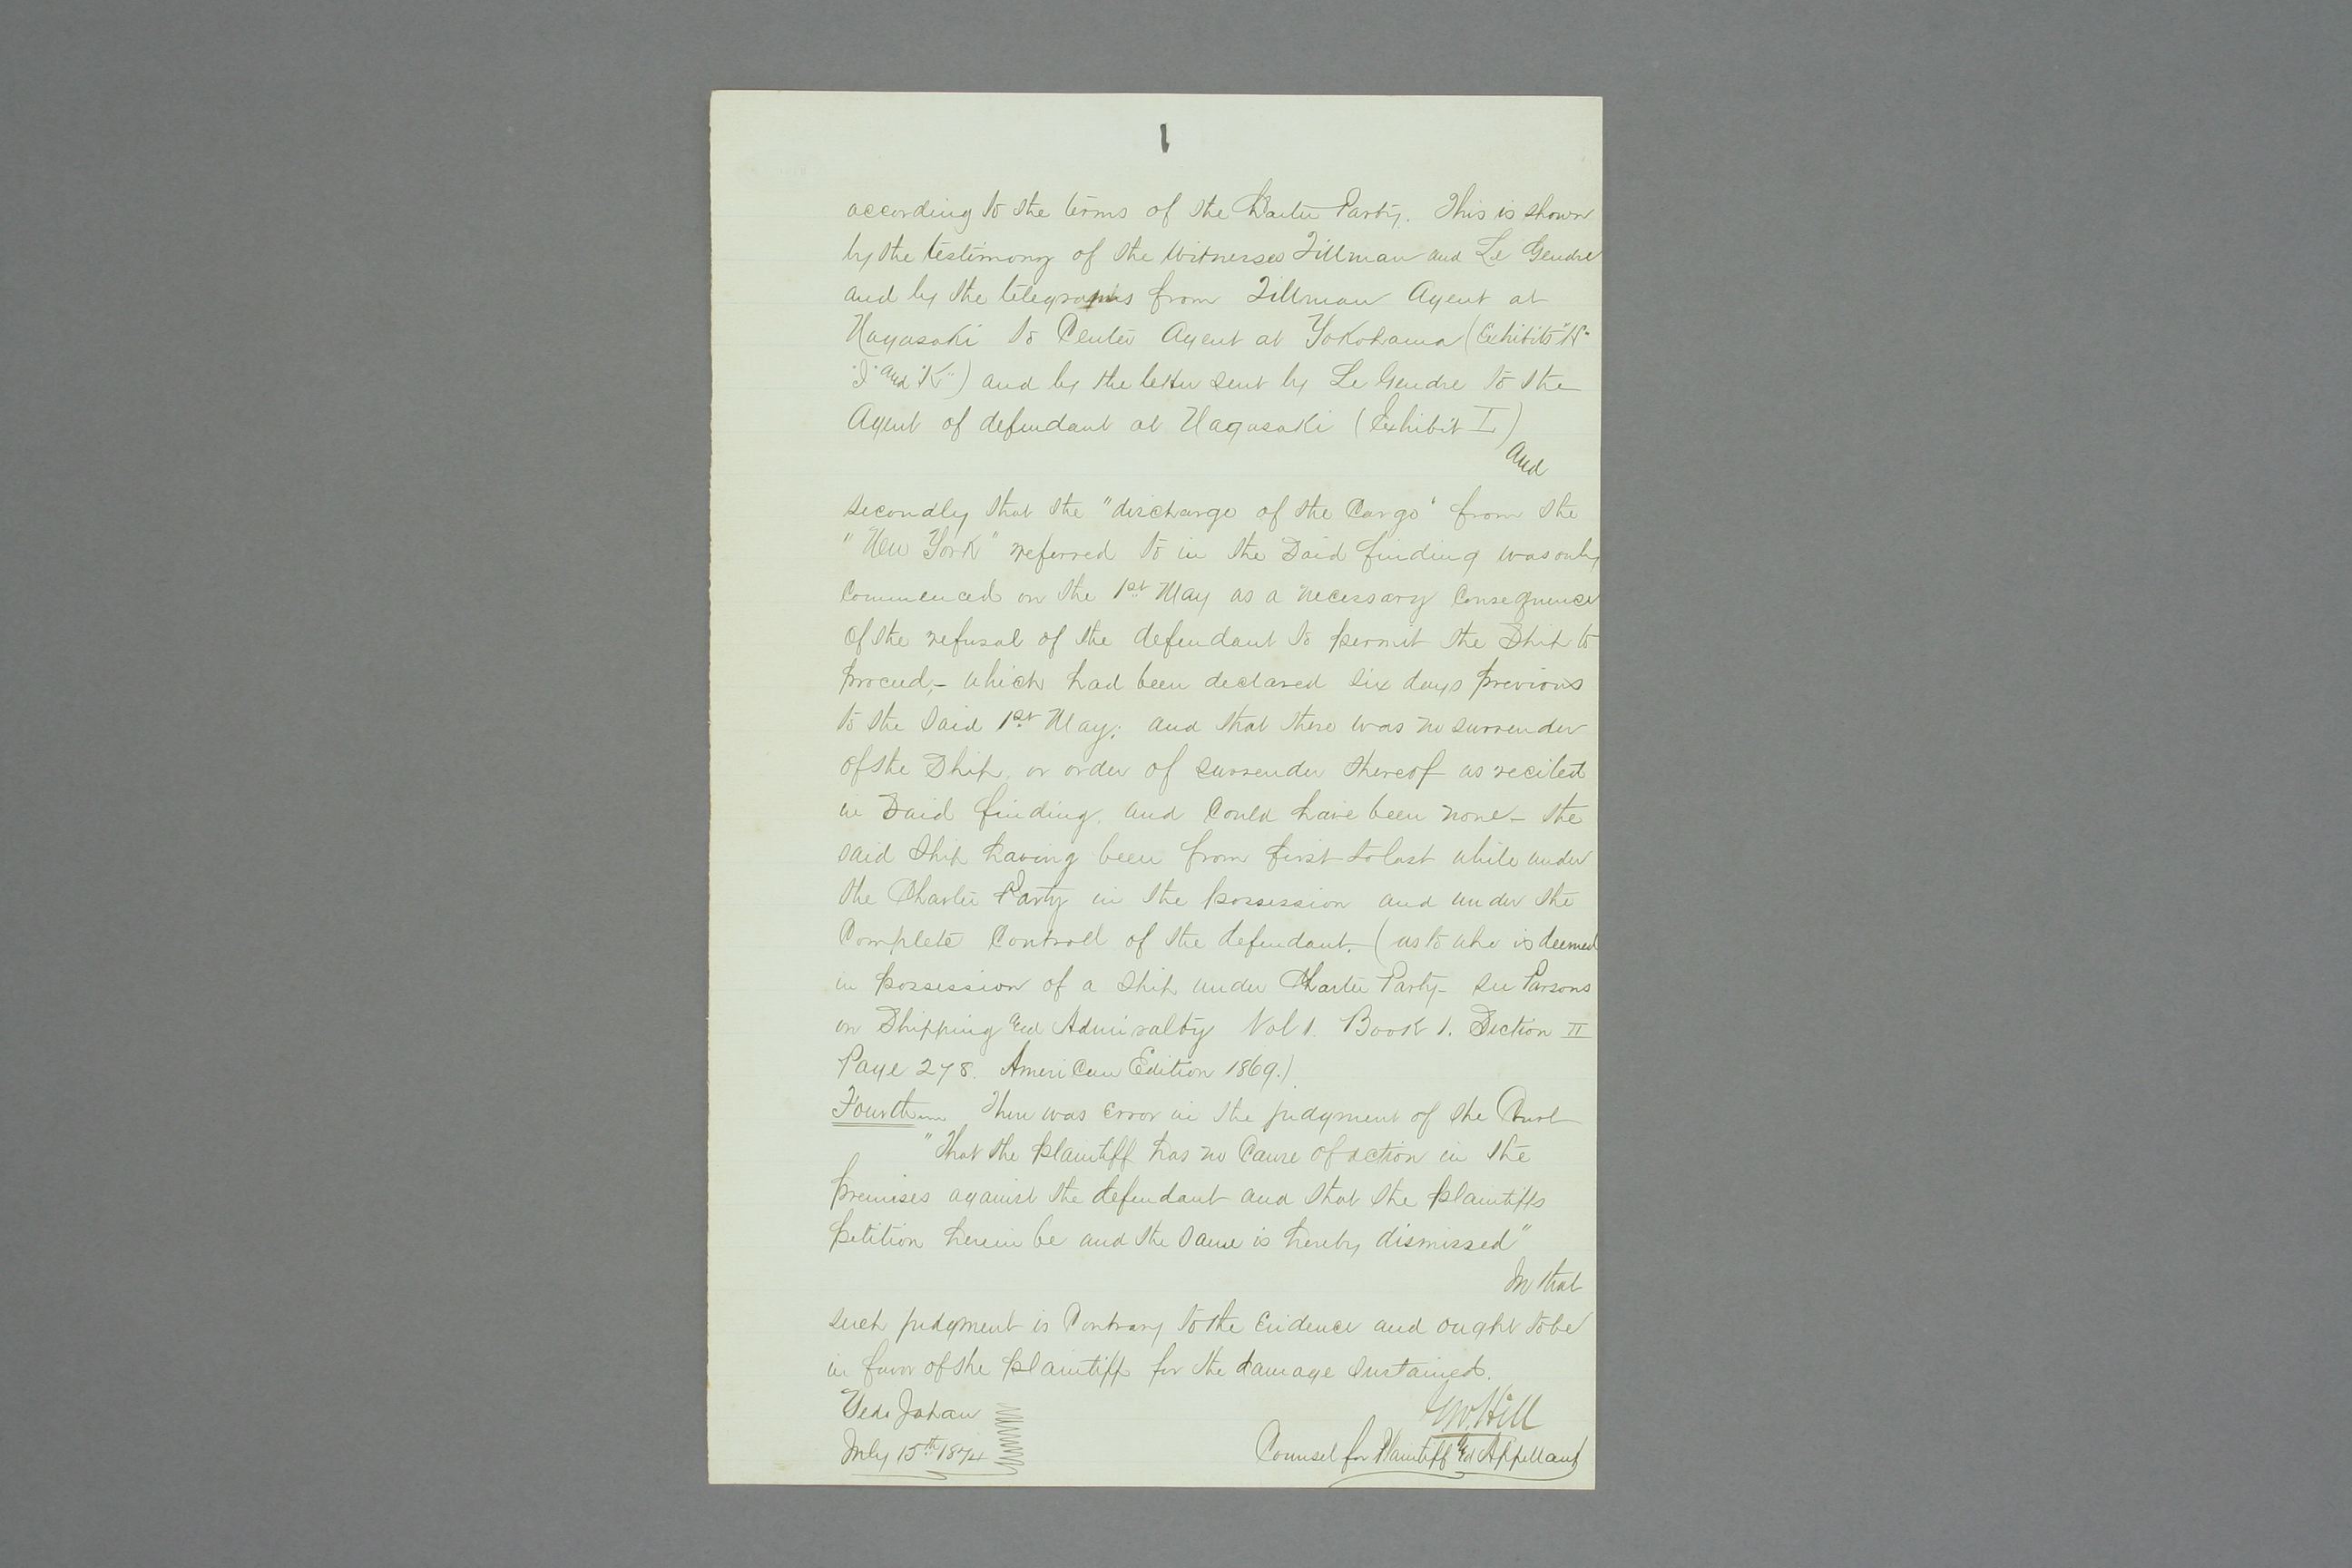 according to the terms of the Charter Party. This is shown
by the testimony of the witnesses Tillman and Le Gendre
and by the telegraphs from Tillman Agent at
Nagasaki to Center Agent at Yokohama (Exhibits "H"
"J" and "K") and by the letter sent by Le Gendre to the
Agent of defendant at Nagasaki (Exhibit I)
and
secondly that the "discharge of the Cargo" from the
"New York" referred to in the Said finding was only
Commenced on the 1st May as a necessary Consequence
of the refusal of the defendant to permit the Ship to
proceed,– which had been declared six days previous
to the Said 1st May; and that there was no surrender
of the Ship, or order of surrender thereof as recited
in Said finding, and Could have been none – the
said Ship having been from first to last while under
the Charter Party in the possession and under the
Complete Controll of the defendant. (as to who is deemed
in possession of a Ship under Charter Party – see Parsons
on Shipping and Admiralty Vol 1. Book 1. Section II
Page 278. American Edition 1869.)
Fourth There was Error in the judgment of the Court
"That the plaintiff has no Cause of action in the
premises against the defendant and that the plaintiffs
petition herein be and the Same is hereby dismissed"
In that
such judgment is Contrary to the Evidence and ought to be
in favor of the plaintiff for the damage Sustained.
Yedo Japan
July 15th 1874
GW. Hill
Counsel for Plaintiff and Appellant